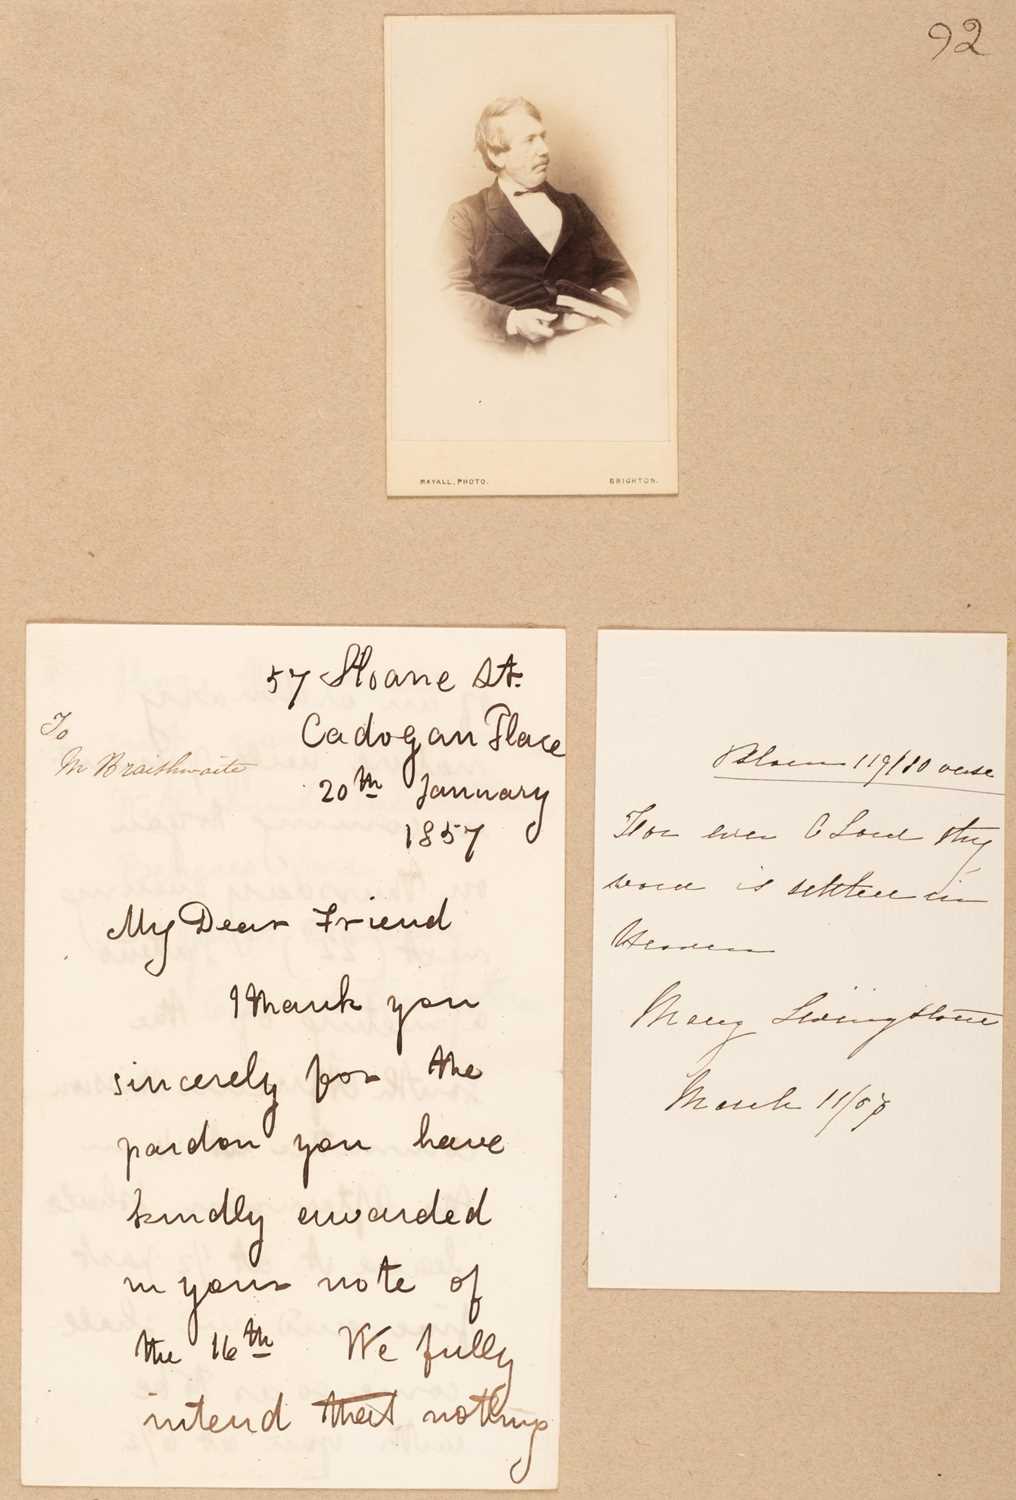 92
MAYALL, PHOTO. BRIGHTON.
57 Sloane St.
Cadogan Place
20th January
1857
To
M Braithwaite
My Dear Friend
I thank you
sincerely for the
pardon you have
kindly awarded
in your note of
the 16th We fully
intend that nothing
Psalm 119/ verse
For ever O Lord thy
word is settled in
Heaven
Mary Livingstone
March 11/